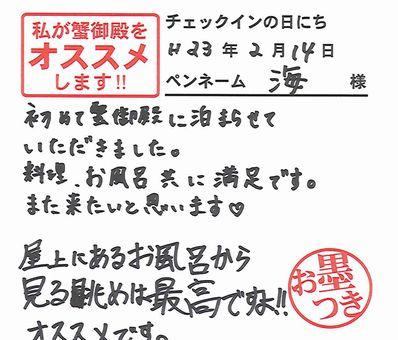 私が蟹御殿を
オススメ
します!!
チェックインの日にち
H23年2月14日
ペンネーム 海 様
初めて蟹御殿に泊まらせて
いただきました。
料理、お風呂共に満足です。
また来たいと思います♡
屋上にあるお風呂から
見る眺めは最高ですよ!!
オススメです。
お墨つき